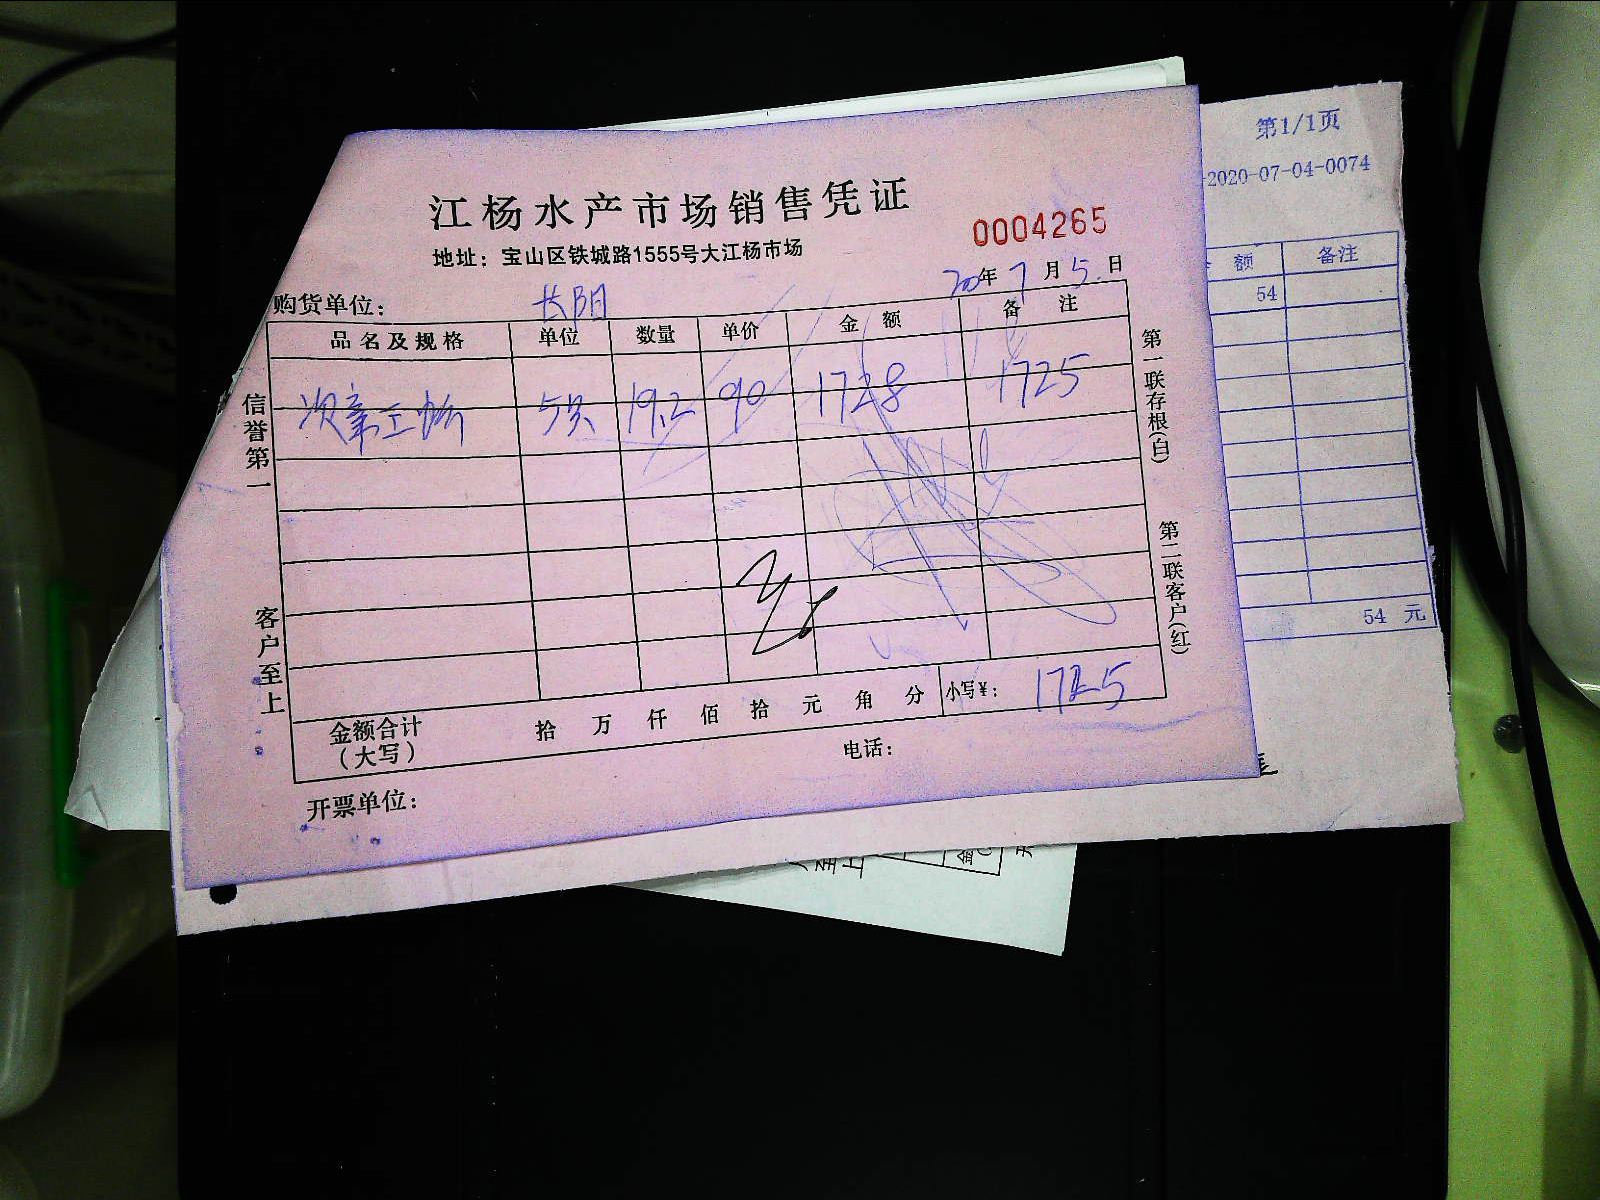 江杨水产市场销售凭证
地址：宝山区铁城路1555号大江杨市场
0004265
20年7月5日
购货单位： 长阳
品名及规格 单位 数量 单价 金额 备注
19.2 90 1728 1725
金额合计（大写） 拾 万 仟 佰 拾 元 角 分 小写¥： 1725
开票单位： 电话：
信誉第一 客户至上
第一联存根(白) 第二联客户(红)
第1/1页
-2020-07-04-0074
额 备注
54
54 元